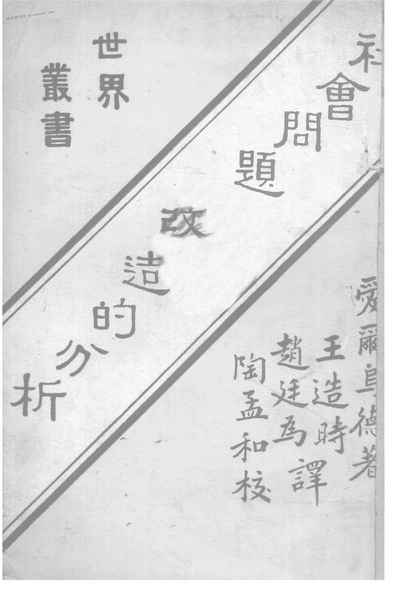 世界
叢書
社會問題
改造的分析
愛爾烏德著
王造時
趙廷為譯
陶孟和校